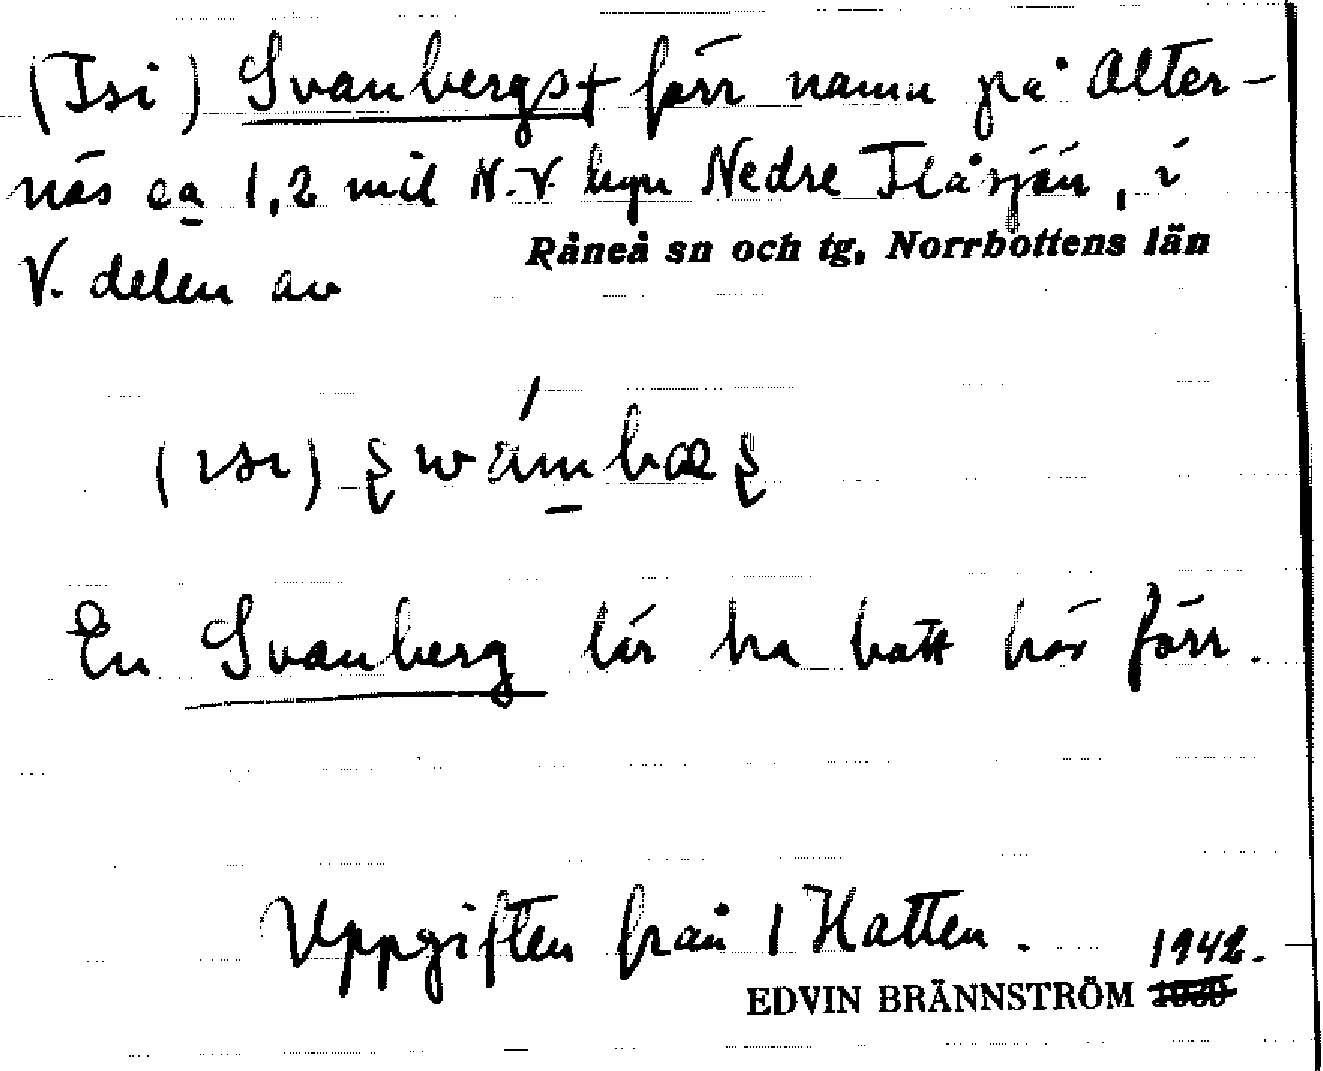 (Isi) Svanbergs + förr namn på Alter-
näs ca 1,2 mil N.V. byn Nedre Flåsjön, i
V. delen av Råneå sn och tg, Norrbottens län
(isi)
En Svanberg lär ha bott här förr.
Uppgiften från 1 Hatten. 1942.
EDVIN BRÄNNSTRÖM 1939